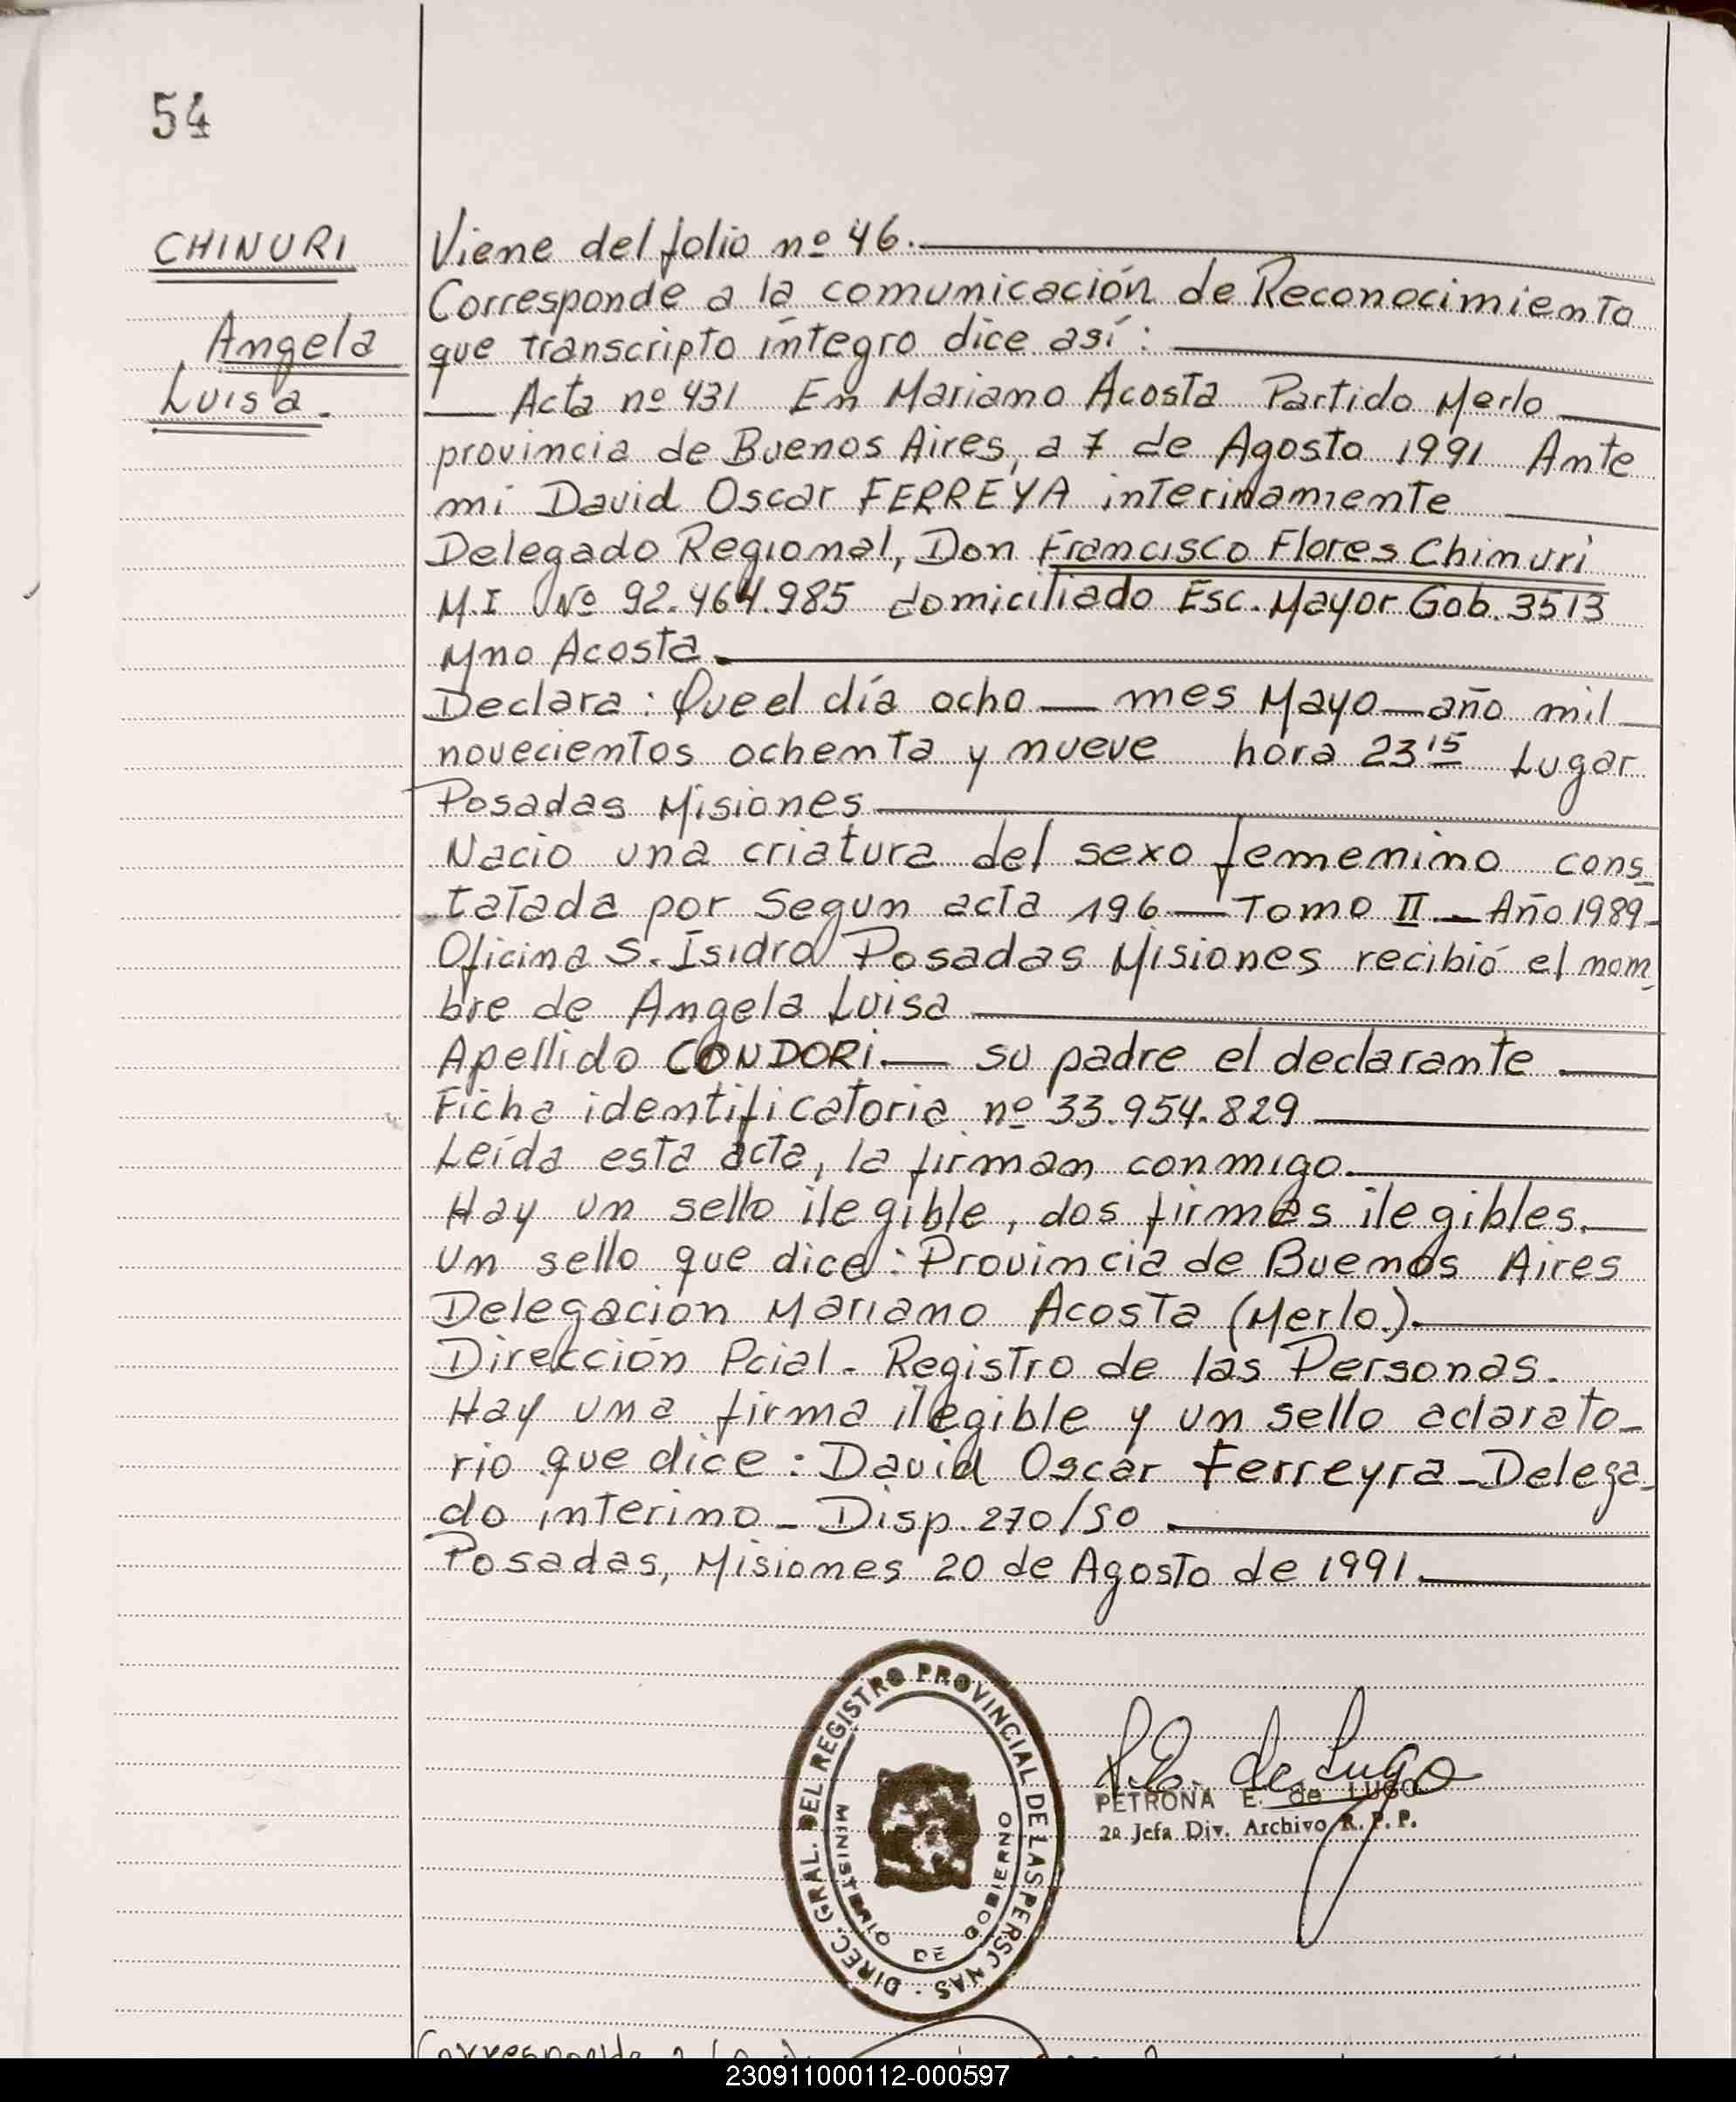 54
CHINURI
Angela
Luisa.
Viene del folio nº 46.
Corresponde a la comunicación de Reconocimiento
que transcripto íntegro dice así:
Acta nº 431 En Mariano Acosta Partido Merlo
provincia de Buenos Aires, a 7 de Agosto 1991 Ante
mi David Oscar FERREYA interinamiente
Delegado Regional, Don Francisco Flores Chinuri
M.I Nº 92.464.985 domiciliado Esc. Mayor Gob. 3513
Mno Acosta.
Declara: Que el día ocho — mes Mayo — año mil
novecientos ochenta y nueve hora 23 15 Lugar
Posadas Misiones
Nacio una criatura del sexo femenino cons
tatada por Segun acta 196 — Tomo II — Año 1989-
Oficina S. Isidro Posadas Misiones recibió el nom
bre de Angela Luisa
Apellido CONDORI. — su padre el declarante
Ficha identificatoria nº 33.954.829
Leída esta acta, la firman conmigo.
Hay un sello ilegible, dos firmas ilegibles.
Un sello que dice: Provincia de Buenos Aires
Delegación Mariano Acosta (Merlo.).
Dirección Pcial. Registro de las Personas.
Hay una firma ilegible y un sello aclarato-
rio que dice: David Oscar Ferreyra - Delega-
do interino - Disp. 270/90
Posadas, Misiones 20 de Agosto de 1991.
DIREC. GRAL. DEL REGISTRO PROVINCIAL DE LAS PERSONAS.
MINISTERIO DE GOBIERNO
P.E. de Lugo
PETRONA E. de LUGO
2º Jefa Div. Archivo R. P. P.
Corresponde a la
230911000112-000597